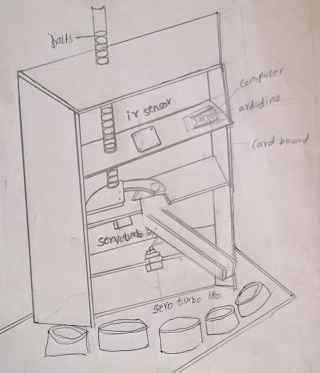 balls
ir sensor
computer
arduino
Card board
servo turbo
sero turbo 180